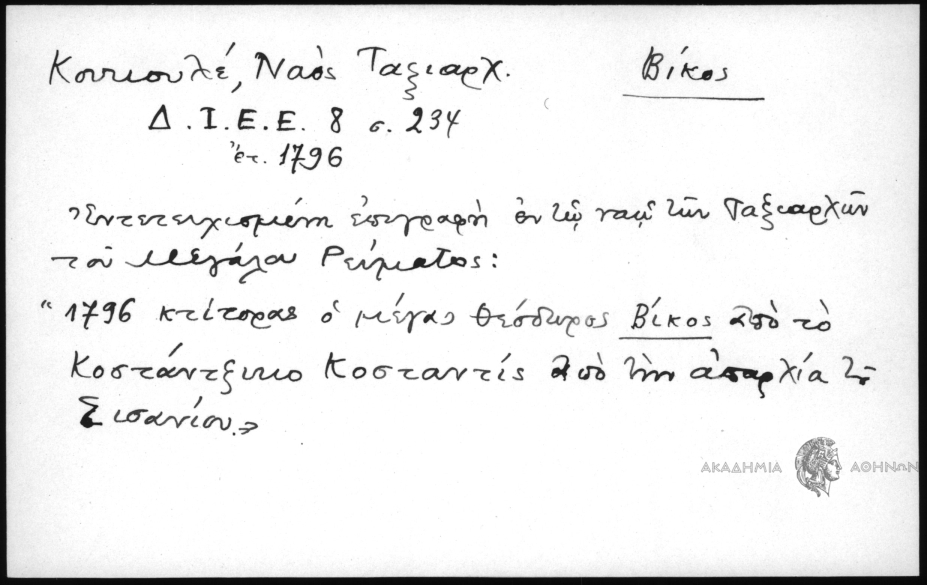 Κουκουλέ, Ναὸς Ταξιαρχ. Βίκος
Δ.Ι.Ε.Ε. 8 σ. 234
ἔτ. 1796
Ἐντετειχισμένη ἐπιγραφὴ ἐν τῷ ναῷ τῶν Ταξιαρχῶν
τοῦ Μεγάλου Ρεύματος:
“1796 κτίτορας ὁ μέγας Θεόδωρος Βίκος ἀπὸ τὸ
Κοστάντζικο Κοσταντίς ἀπὸ τὴν ἀπαρχία τοῦ
Σισανίου.»
ΑΚΑΔΗΜΙΑ ΑΘΗΝΩΝ